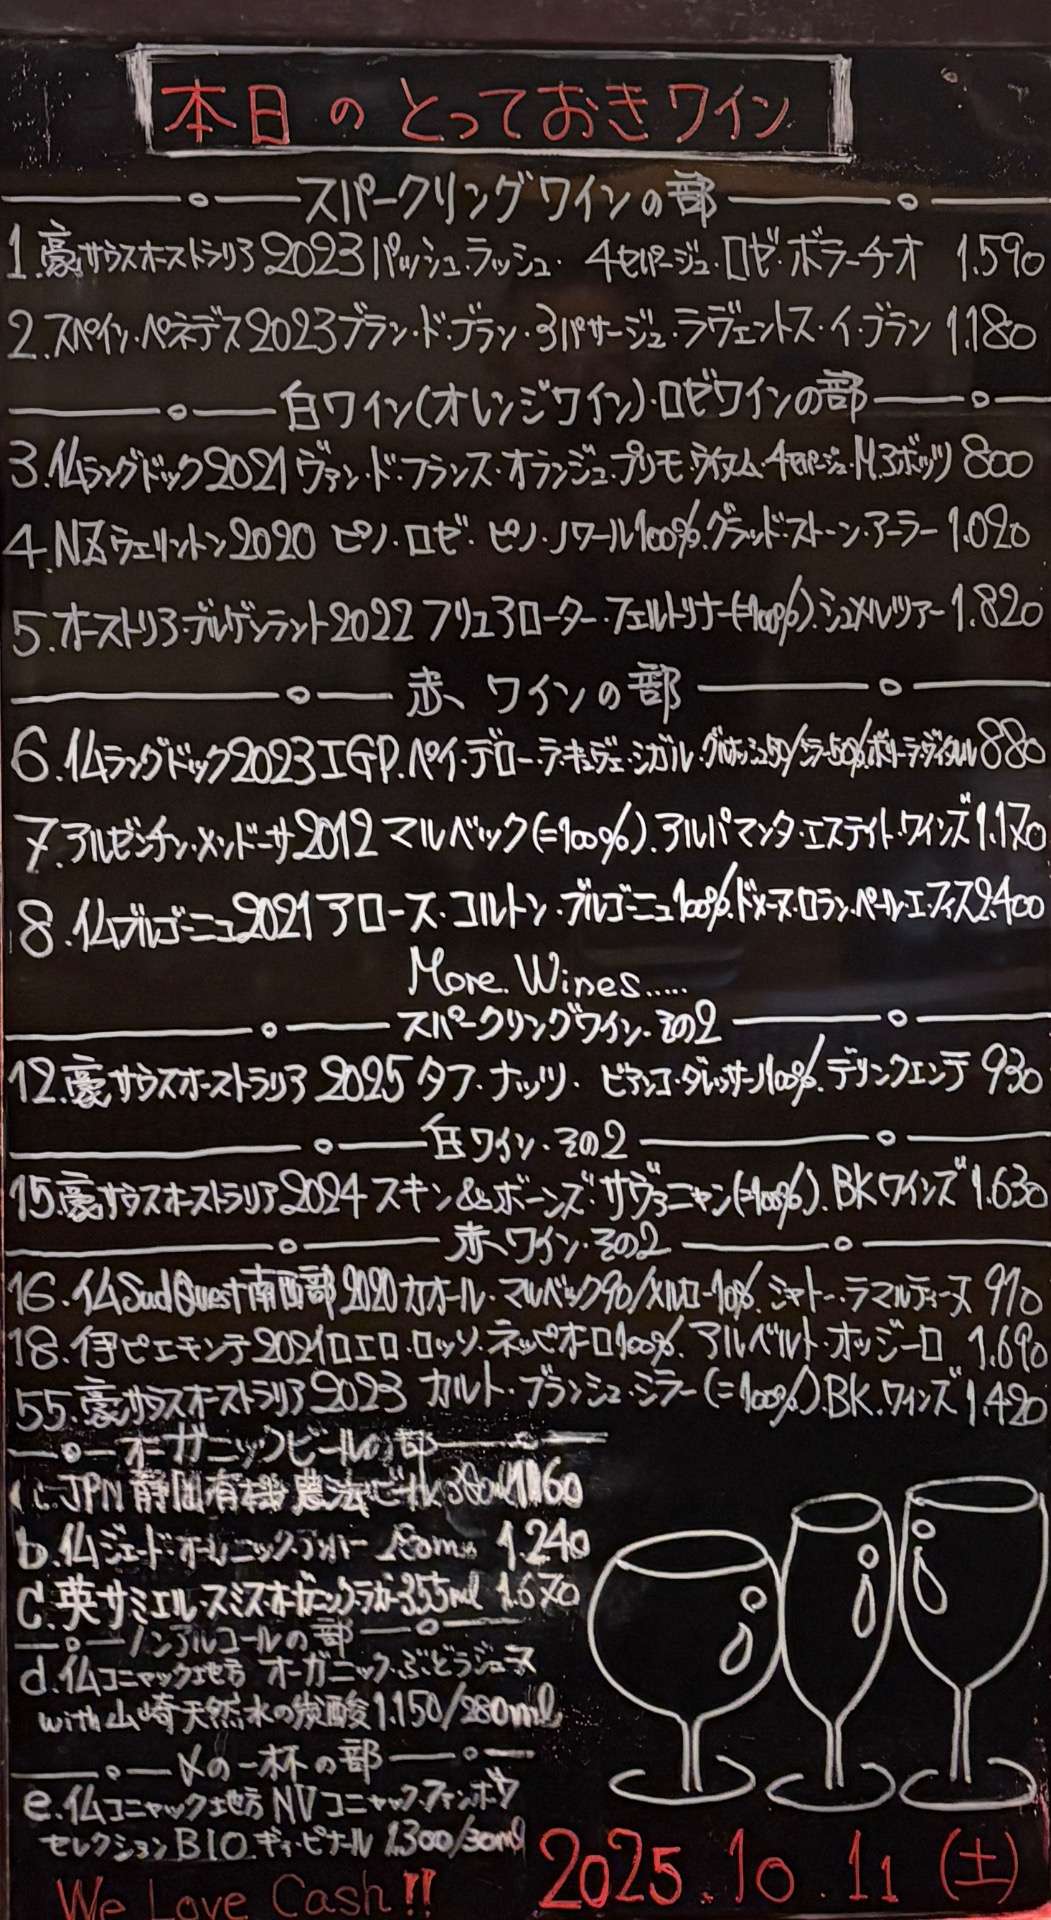 本日のとっておきワイン
スパークリングワインの部
1.豪サウスオーストラリア2023パッシュ・ラッシュ・4セパージュ・ロゼ・ボラーチオ 1.590
2.スペイン・ペネデス2023ブラン・ド・ブラン・3パサージュ・ラヴェントス・イ・ブラン 1.180
白ワイン(オレンジワイン)・ロゼワインの部
3.仏ラングドック2021ヴァン・ド・フランス・オランジュ・プリモ・ 4セパージュ・M.3ボッツ 800
4.NZウェリントン2020 ピノ・ロゼ・ピノ・ノワール100%.グラッド・ストーン・アーラー 1.020
5.オーストリア・ブルゲンラント2022フリュアローター・フェルトリナー(=100%).シュメルツァー 1.820
赤ワインの部
6.仏ラングドック2023IGP.ペイ・デロー・ラ・キュヴェ・シガル・グルナッシュ50/シラー50%.ボリー・ラ・ヴィタレル 880
7.アルゼンチン・メンドーサ2012マルベック(=100%).アルパマンタ・エステイト・ワインズ 1.170
8.仏ブルゴーニュ2021アロース・コルトン・ブルゴーニュ100%.ドメーヌ・ロラン・ペール・エ・フィス 2.400
More Wines.....
スパークリングワイン・その2
12.豪サウスオーストラリア2025タフ・ナッツ・ビアンコ・ダレッサーノ100%.デリンクエンテ 930
白ワイン・その2
15.豪サウスオーストラリア2024スキン&ボーンズ・サヴァニャン(=100%).BKワインズ 1.630
赤ワイン・その2
16.仏SudOuest南西部2020カオール・マルベック90/メルロー10%.シャトー・ラマルティーヌ 910
18.伊ピエモンテ2021ロエロ・ロッソ・ネッビオーロ100%.アルベルト・オッジーロ 1.690
55.豪サウスオーストラリア2023 カルト・ブランシュ・シラー(=100%).BK.ワインズ 1.420
オーガニックビールの部
JPN静岡有機農法ビール 1.160
b.仏ジェード・オーガニック・ 1.240
c.英サミエル・スミス・オーガニック・ラガー355ml 1.670
ノンアルコールの部
d.仏コニャック地方 オーガニック・ぶどうジュース
with山崎天然水の炭酸 1.150/280ml
〆の一杯の部
e.仏コニャック地方NVコニャック・ファンボワ
セレクションBIO.ギィ・ピナール 1.300/30ml
We Love Cash!!
2025.10.11(土)